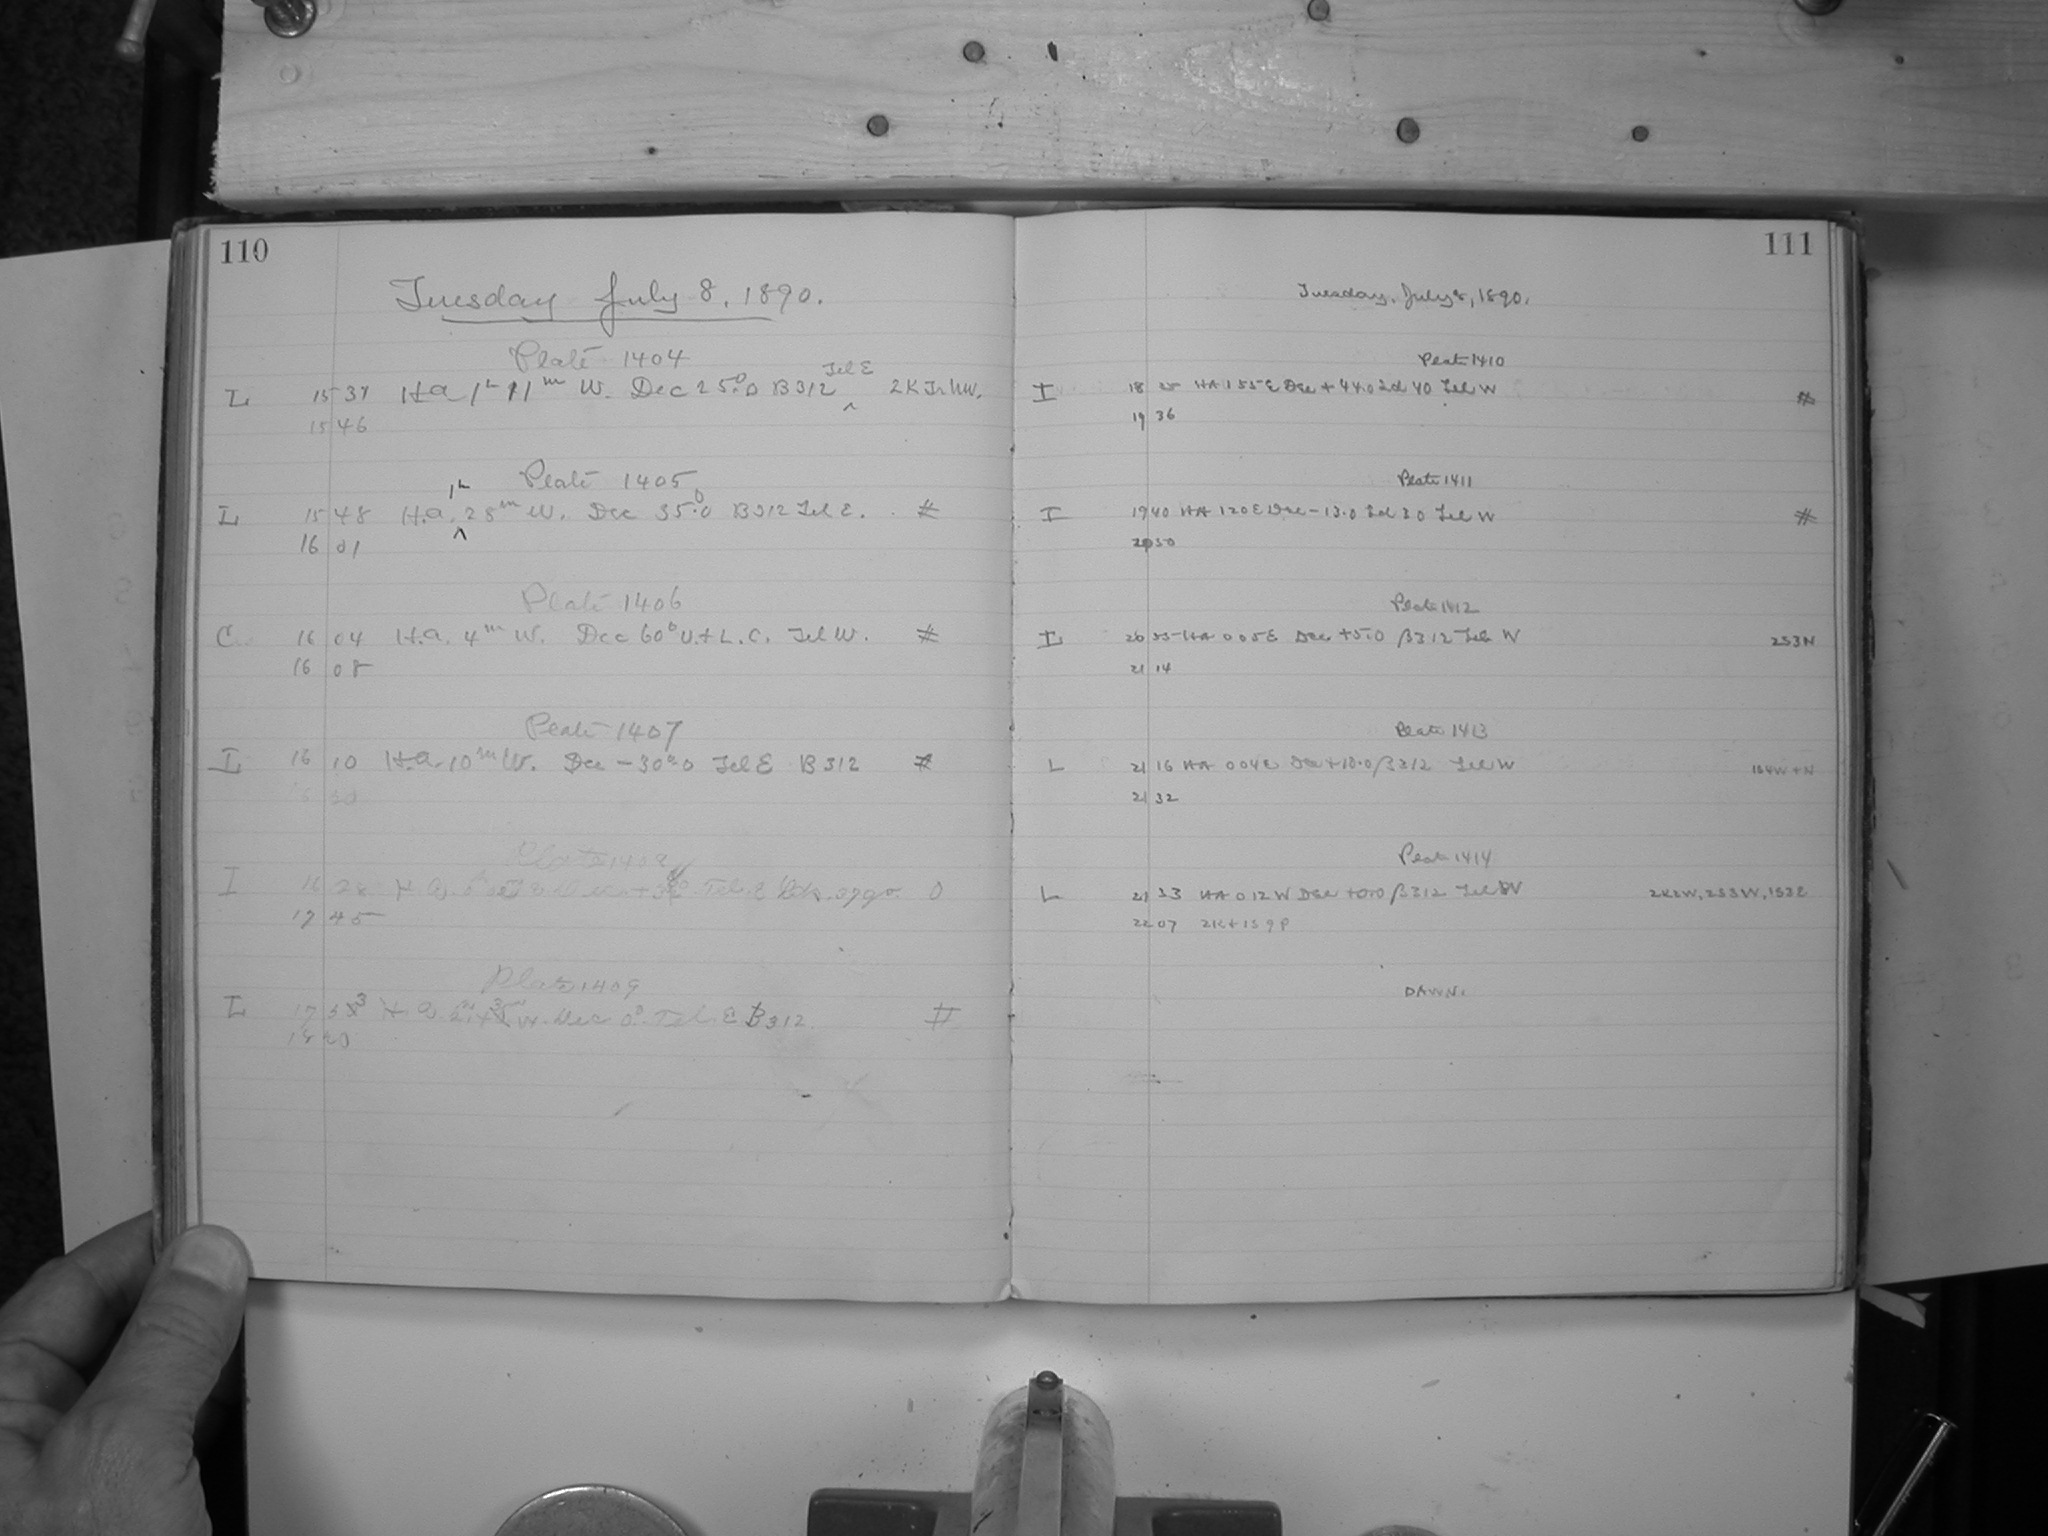 110
Tuesday July 8, 1890.
Plate 1404
L 15 37 H.a. 1h 11m W. Dec 25°.0 B312 Tel E 2K Tr W.
15 46
Plate 1405
L 15 48 H.a. 1h 28m W. Dec 35°.0 B312 Tel E. #
16 01
Plate 1406
C. 16 04 H.a. 4m W. Dec 60° U.+L.C. Tel W. #
16 08
Plate 1407
I 16 10 H.a. 10m W. Dec -30°.0 Tel E B312 #
Plate 1408
I 16 H.a. Dec. Tel. E 0
17 45
Plate 1409
L 17 H.a. W. Dec 0°. Tel. E B312 #
111
Tuesday, July 8, 1890.
Plate 1410
I 18 25 HA 155E Dec +44.0 Ld 40 Tel W #
19 36
Plate 1411
I 19 40 HA 120E Dec -13.0 Ld 30 Tel W #
20 50
Plate 1412
I 20 55 HA 005E Dec +5.0 β312 Tel W 2S3N
21 14
Plate 1413
L 21 16 HA 004E Dec +10.0 β312 Tel W 1S4W+N
21 32
Plate 1414
L 21 33 HA 012W Dec +0.0 β312 Tel W 2K2W, 2S3W, 1S3E
22 07 2K+1S9P
DAWN.